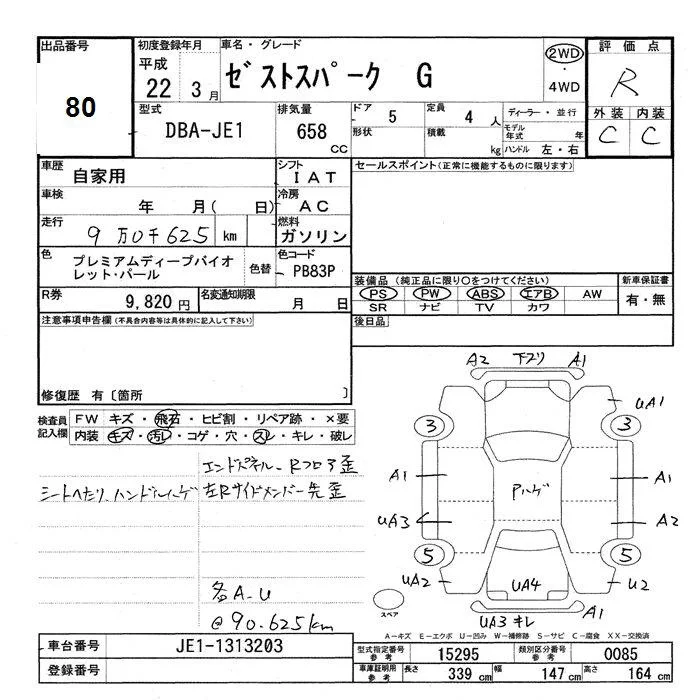 出品番号
80
初度登録年月
平成
22 3月
車名・グレード
ゼストスパーク G
2WD
・
4WD
評価点
R
外装 内装
C C
型式
DBA-JE1
排気量
658
CC
ドア
5
定員
4 人
形状
積載
kg
ディーラー・並行
モデル年式 年
ハンドル 左・右
車歴
自家用
シフト
IAT
セールスポイント(正常に機能するものに限ります)
車検
年 月( 日)
冷房
AC
走行
9万0千625 km
燃料
ガソリン
色
プレミアムディープバイオ
レット・パール
色替
色コード
PB83P
装備品(純正品に限り○をつけてください)
PS PW ABS エアB AW
SR ナビ TV カワ
新車保証書
有・無
R券
9,820円
名変通知期限
月 日
後日品
注意事項申告欄(不具合内容等は具体的に記入して下さい)
修復歴 有〔箇所 〕
検査員
記入欄
FW キズ・飛石・ヒビ割・リペア跡・×要
内装 キズ・汚レ・コゲ・穴・スレ・キレ・破レ
エンドパネル-Rフロア歪
シートヘたり ハンドルハゲ 左Rサイドメンバー先歪
各A-U
@90.625km
A2 下スリ A1
3 3 UA1
A1 A1
Pハゲ
UA3 A2
5 5
UA2 UA4 U2
UA3キレ A1
スペア
A-キズ E-エクボ U-凹み W-補修跡 S-サビ C-腐食 XX-交換済
車台番号
JE1-1313203
登録番号
型式指定番号
参考
15295
類別区分番号
参考
0085
車庫証明用
参考
長さ 339 cm 幅 147 cm 高さ 164 cm